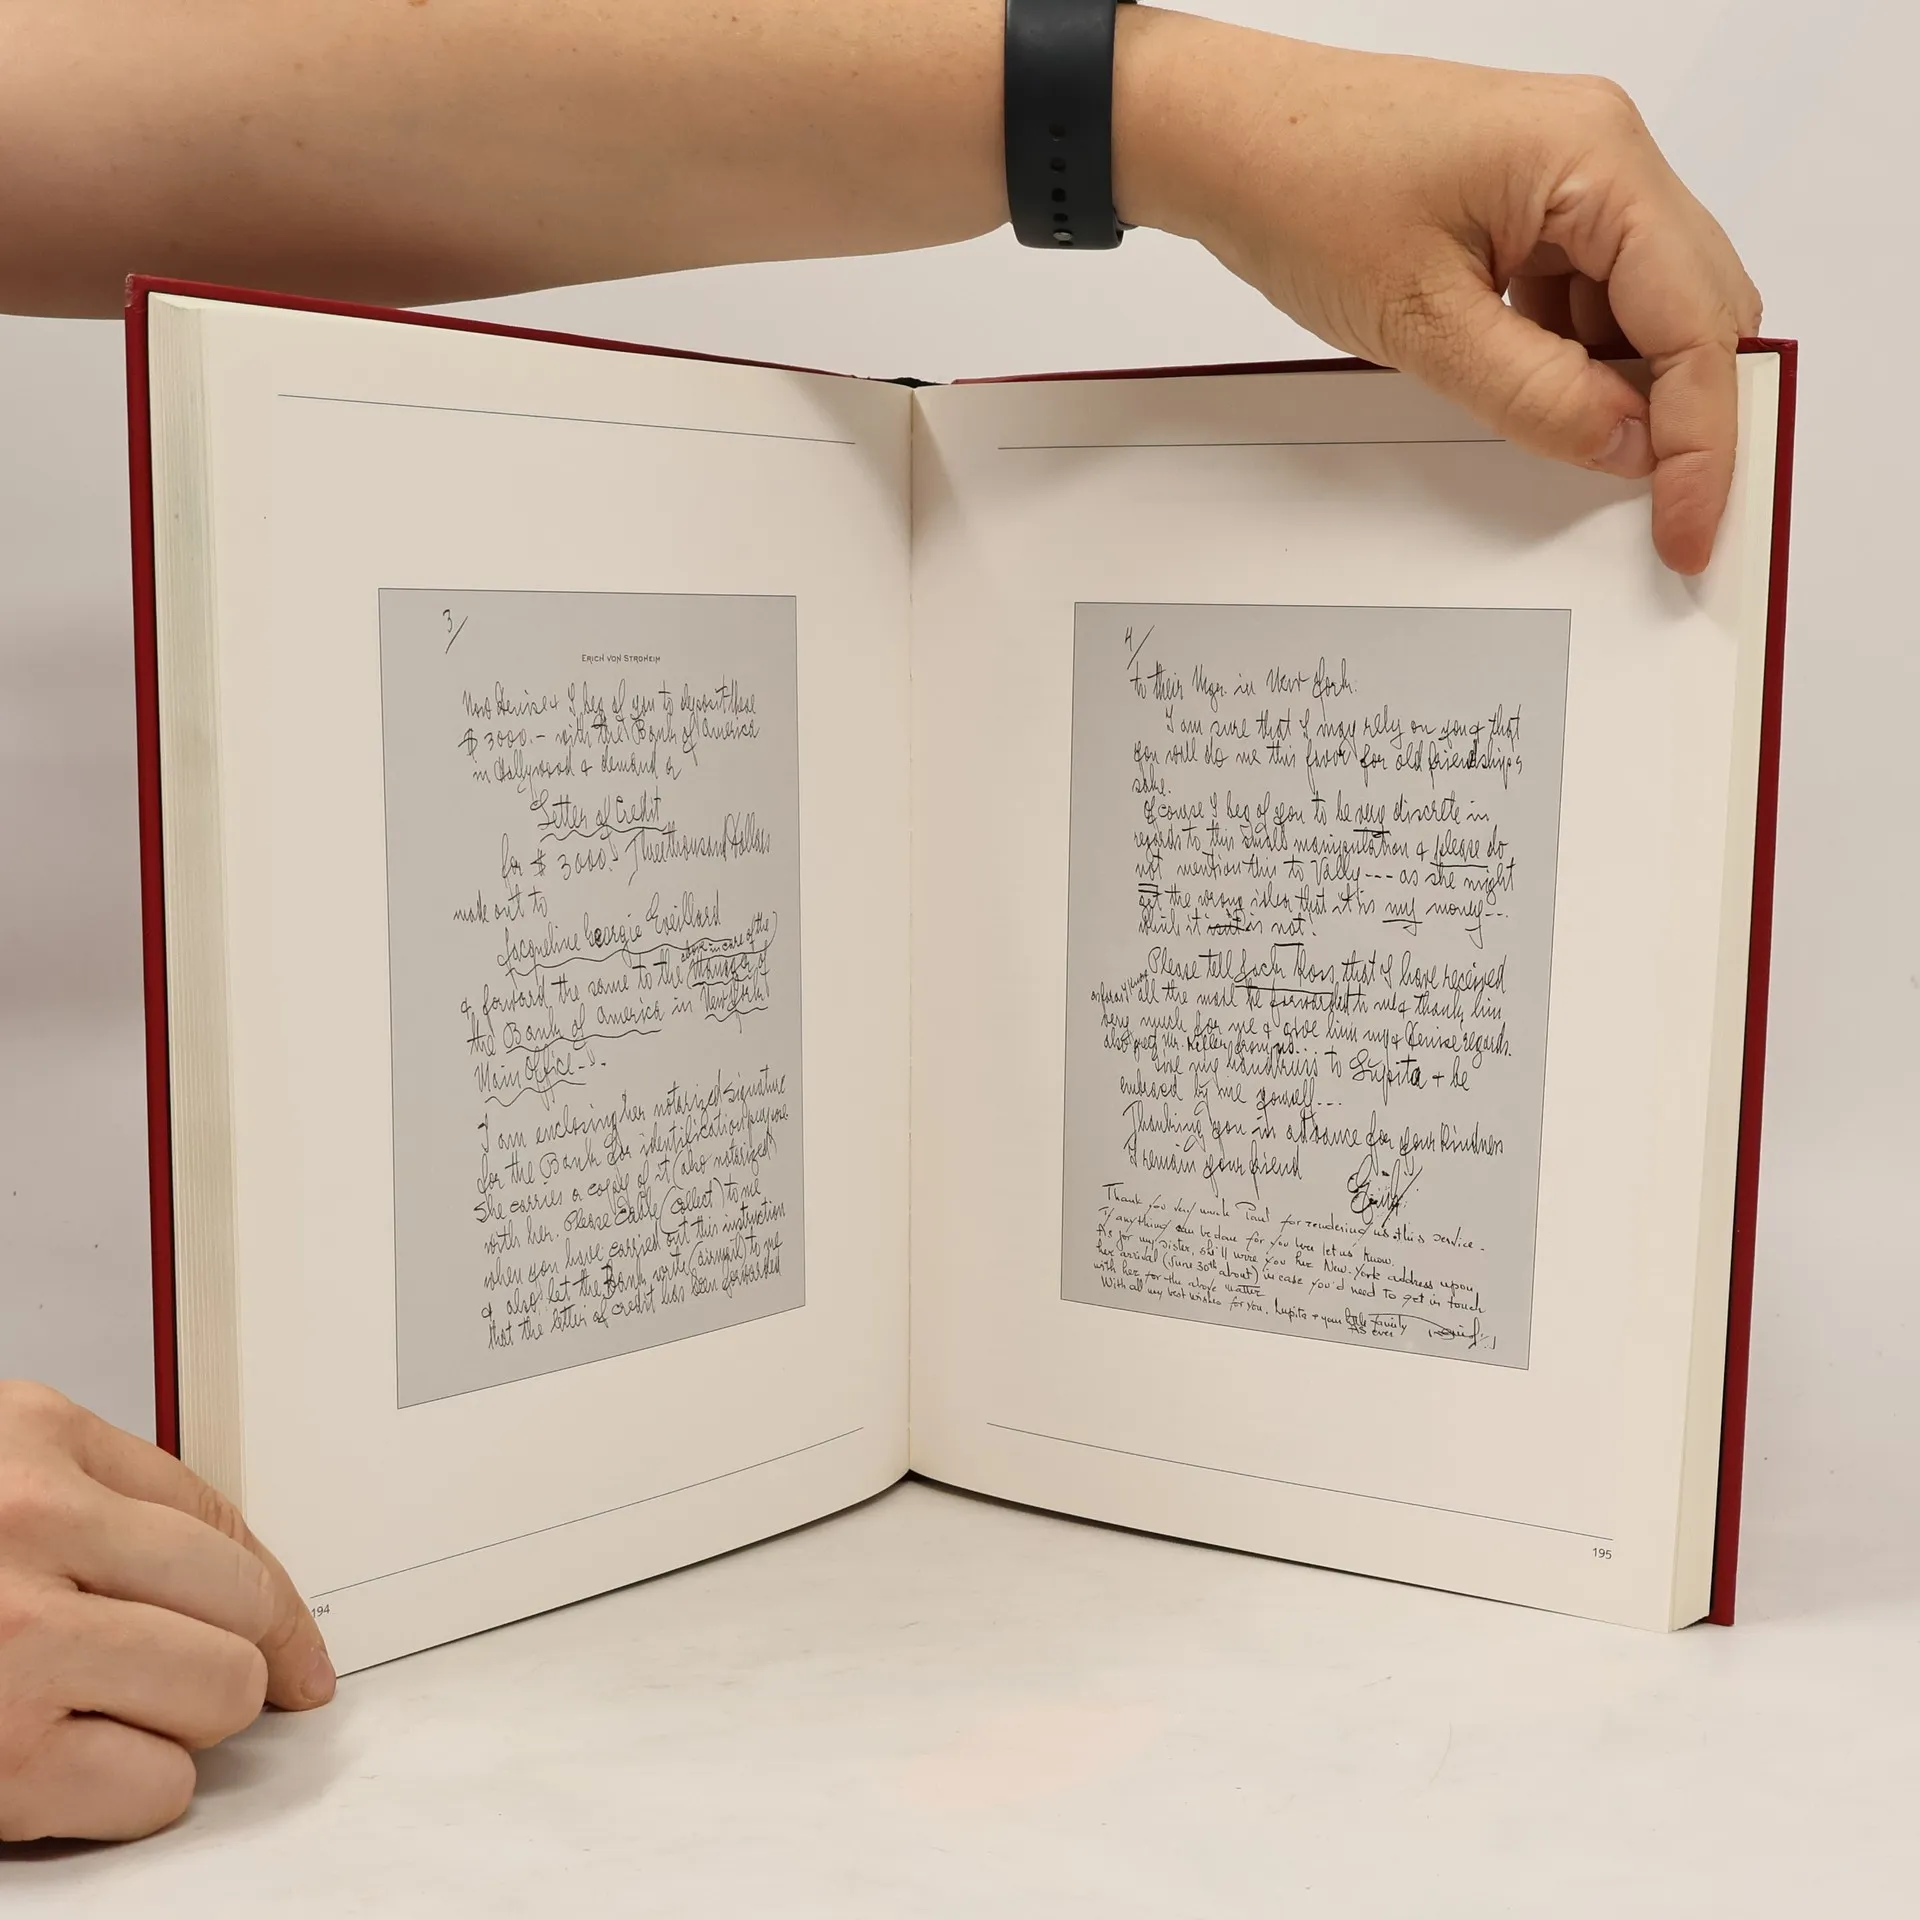 3/
ERICH VON STROHEIM
Now Denise & I beg of you to deposit these
$ 3000.- with the Bank of America
in Hollywood & demand a
Letter of Credit
for $ 3000.- Threethousand Dollars
made out to
Jacqueline Georgie Vreillard
& forward the same to the (Manager of
above in care of the)
the Bank of America in New York
Main Office.-
I am enclosing her notarized signature
for the Bank for identification purpose.
She carries a copy of it (also notarized)
with her. Please Cable (collect) to me
when you have carried out this instruction
& also let the Bank write (airmail) to me
that the letter of credit has been forwarded
194
4/
to their Mgr. in New York.
I am sure that I may rely on you & that
you will do me this favor for old friendship's
sake.
Of course I beg of you to be very discrete in
regards to this small manipulation & please do
not mention this to Vally --- as she might
get the wrong idea that it is my money---
while it is not!
Please tell that I have received
all the mail he forwarded to me & thank him
very much for me & give him my & Denise regards.
also Mr.
Give my to Lupita & be
embraced by me yourself...
Thanking you in advance for your kindness
I remain your friend
Erich
Thank you very much Paul for rendering us this service.
If anything can be done for you here let us know.
As for my sister, she'll wire you her New-York address upon
her arrival (June 30th about) in case you'd need to get in touch
with her for the above matter
With all my best wishes for you, Lupita & your little family
As ever Denise
195